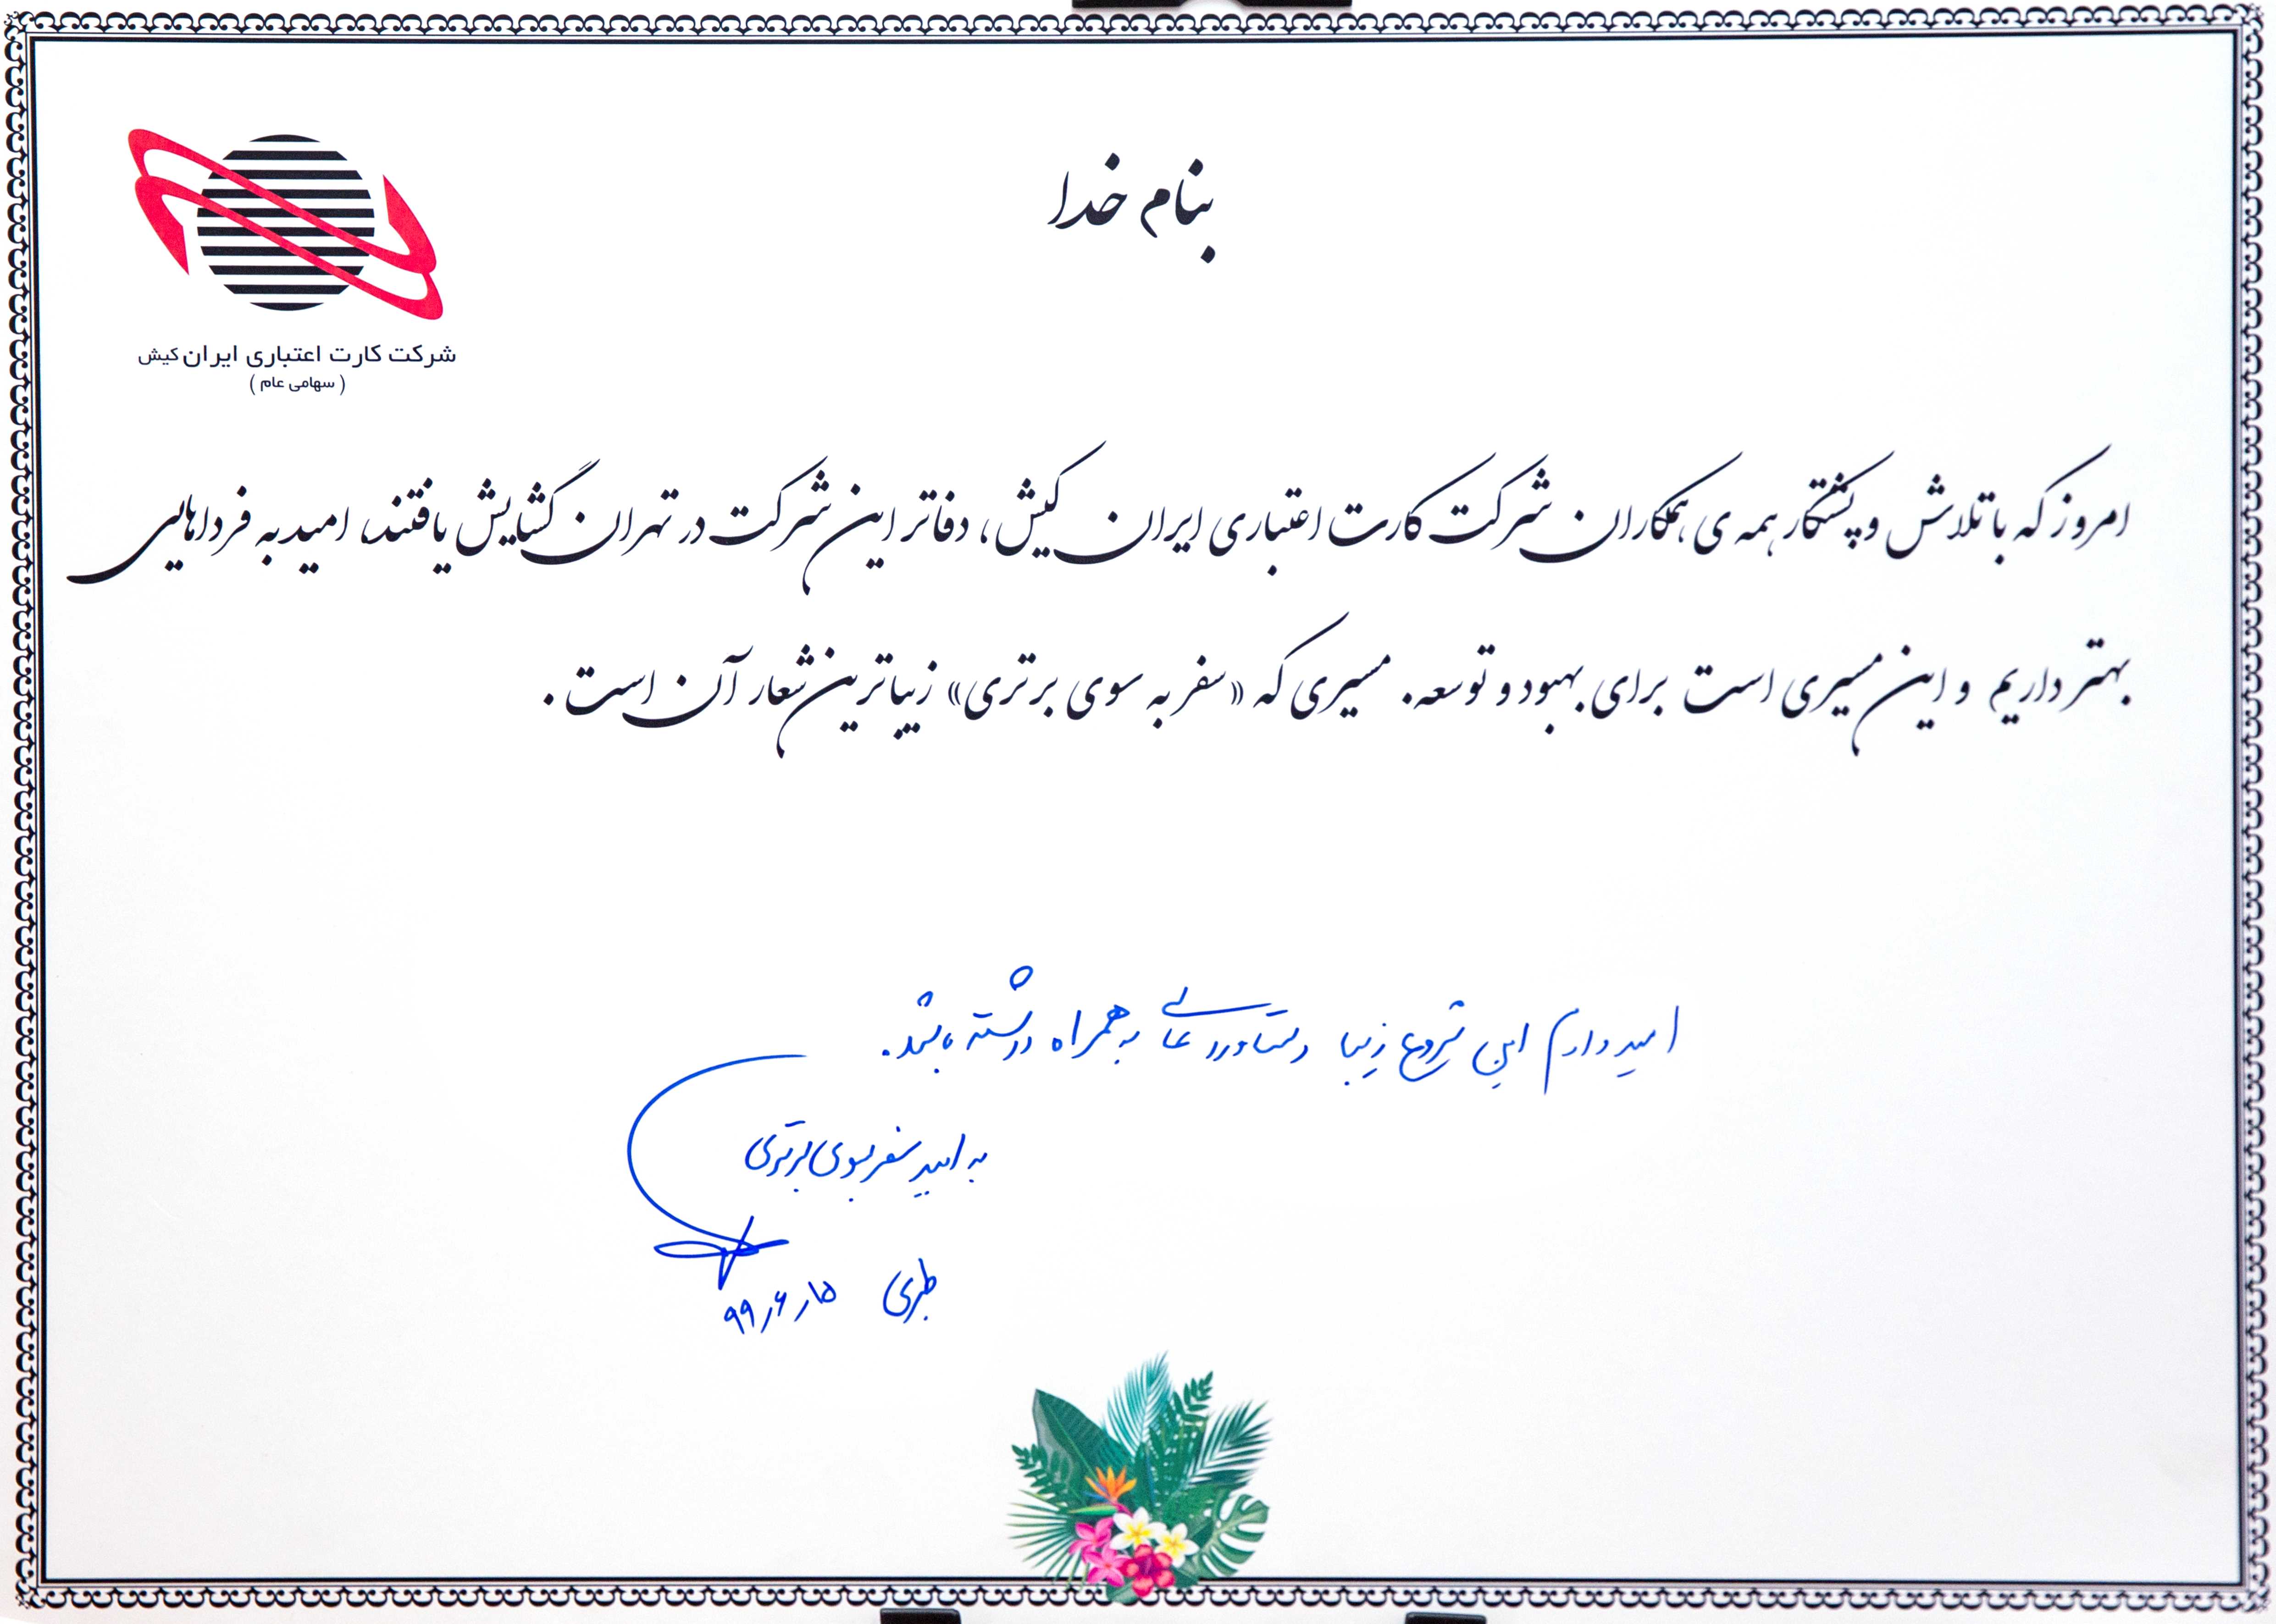 بنام خدا
شرکت کارت اعتباری ایران کیش
( سهامی عام )
امروز که با تلاش و پشتکار همه ی همکاران شرکت کارت اعتباری ایران کیش، دفاتر این شرکت در تهران گشایش یافتند، امید به فرداهایی
بهتر داریم و این مسیری است برای بهبود و توسعه. مسیری که «سفر به سوی برتری» زیباترین شعار آن است.
امیدوارم این شروع زیبا دستاورد عالی به همراه داشته باشد.
به امید سفر بسوی برتری
۹۹/۶/۱۵